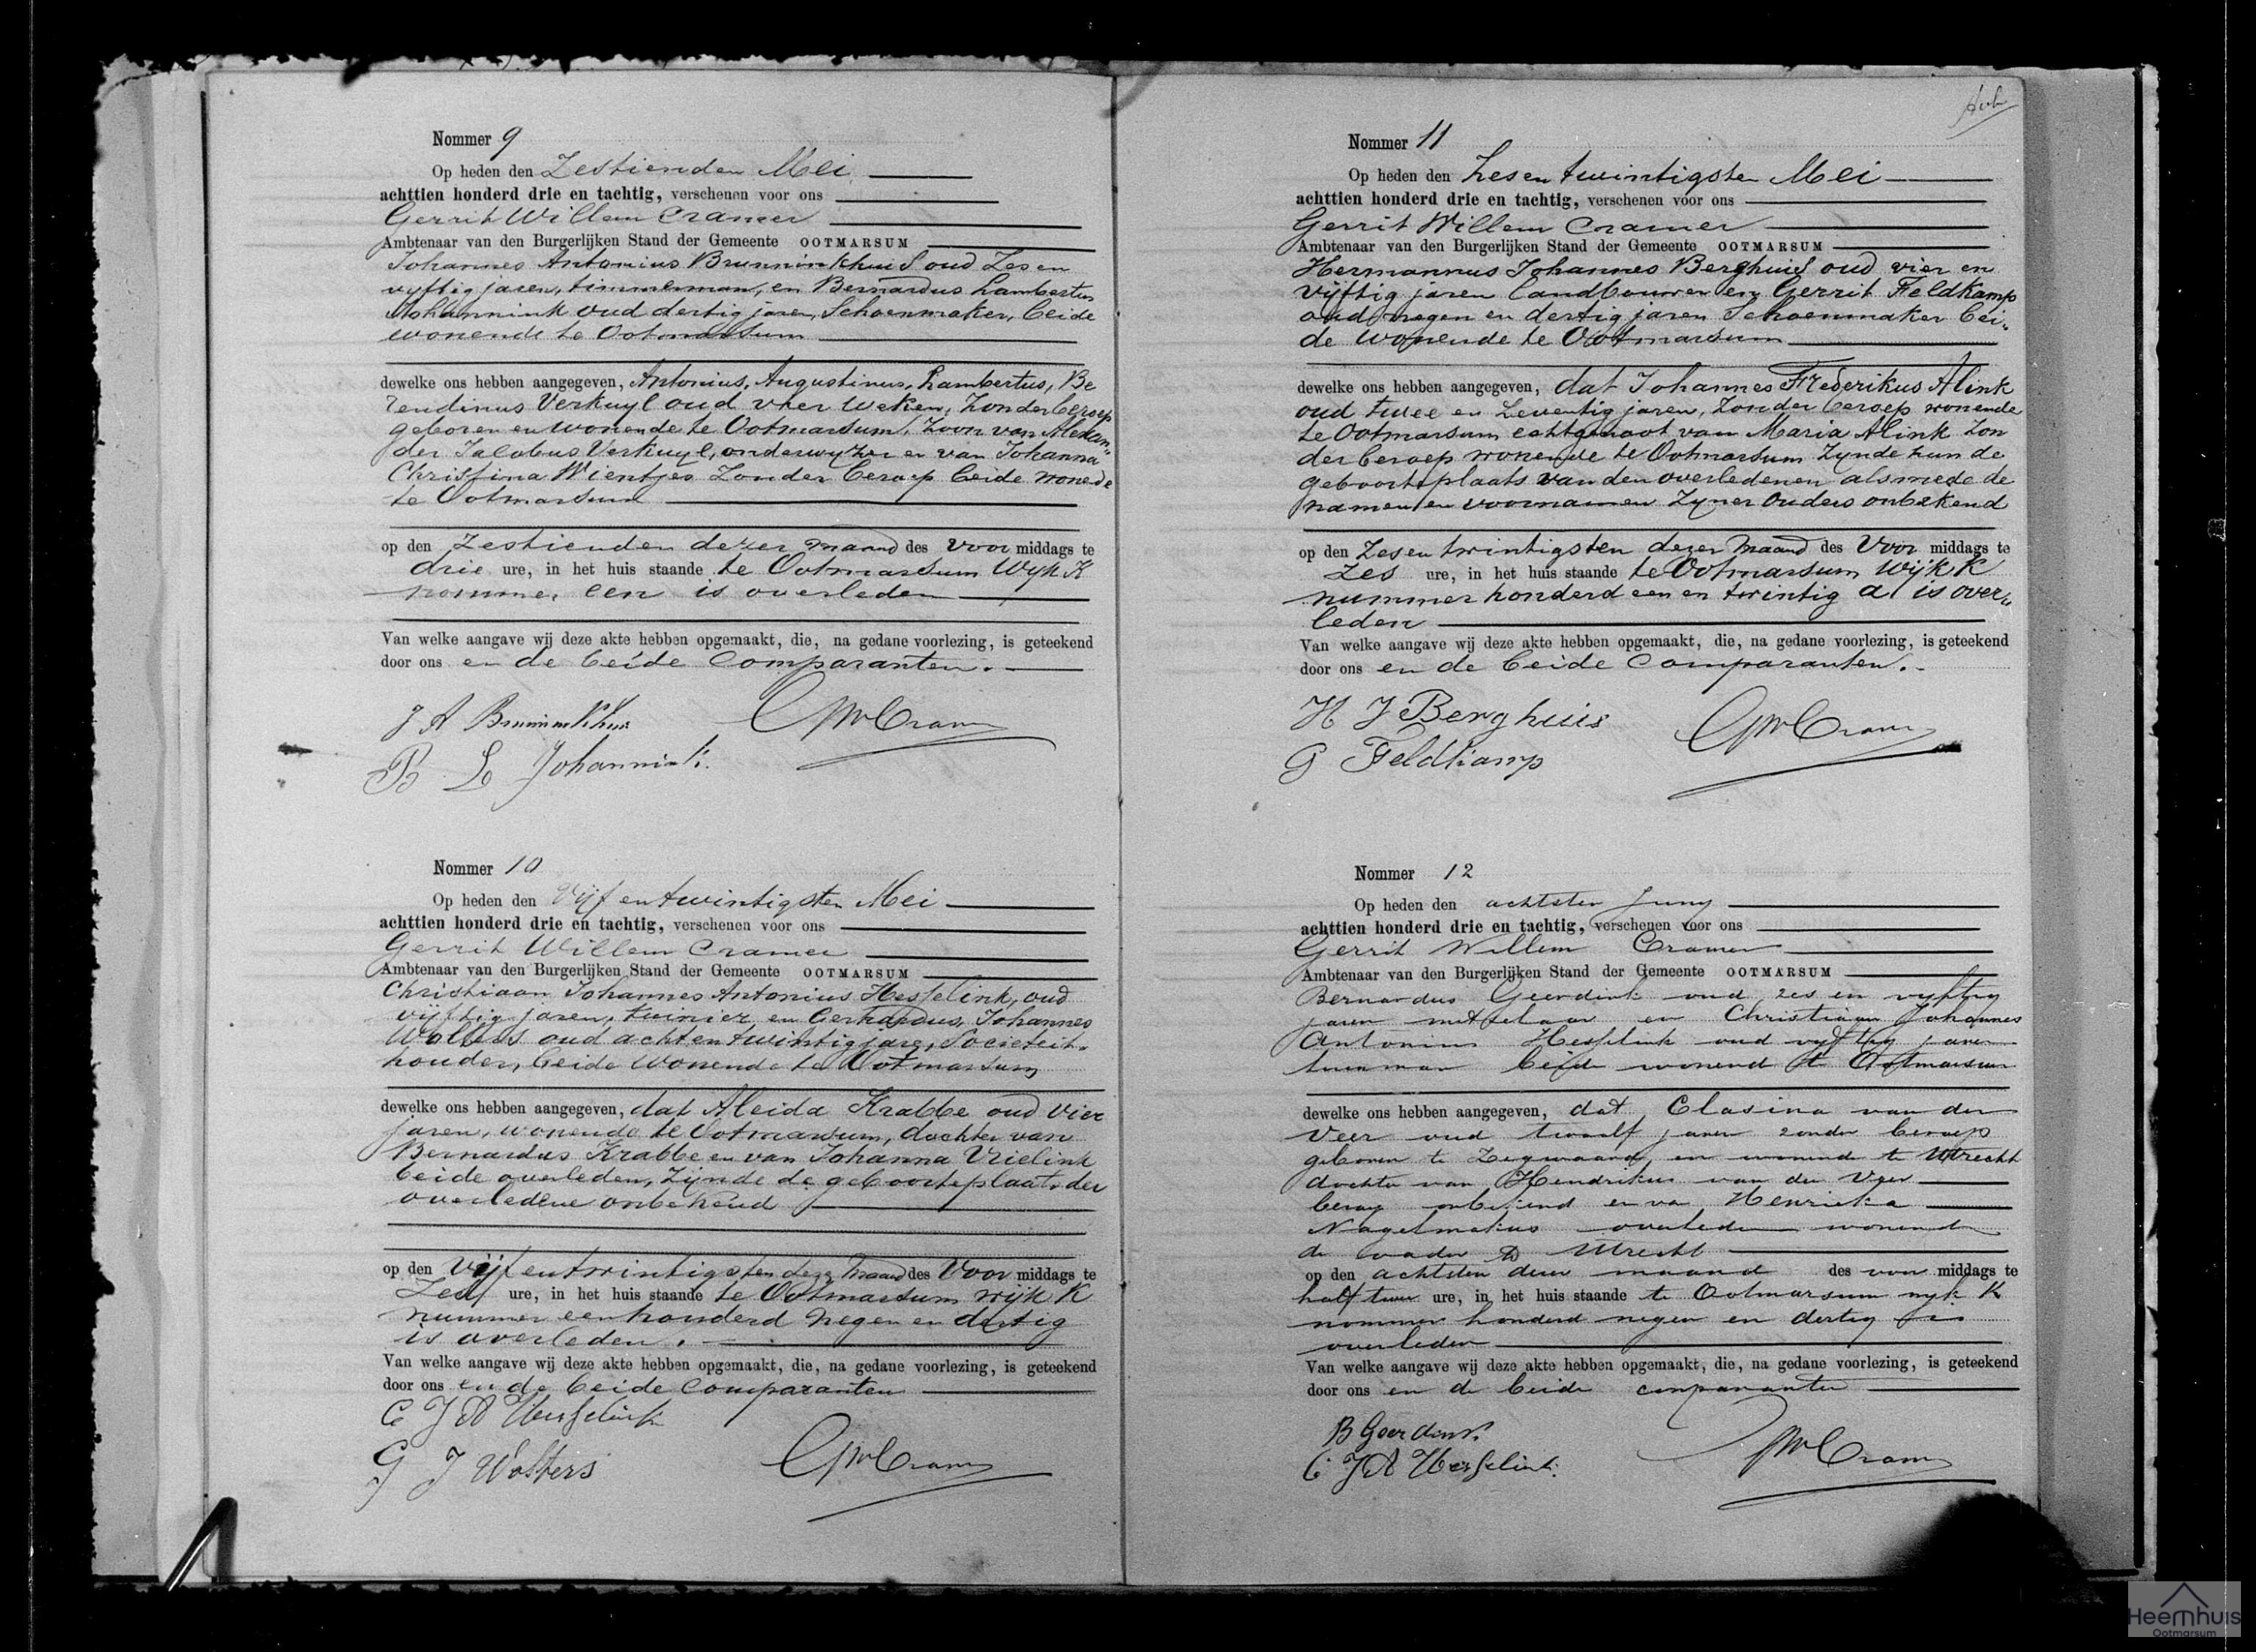 Nommer 9
Op heden den Zestienden Mei
achttien honderd drie en tachtig, verschenen voor ons
Gerrit Willem Cramer
Ambtenaar van den Burgerlijken Stand der Gemeente OOTMARSUM
Johannes Antonius Brunninkhuis oud Zes en
vyftig jaren, timmerman, en Bernardus Lambertus
Johannink oud dertig jaren, Schoenmaker, beide
wonende te Ootmarsum
dewelke ons hebben aangegeven, Antonius, Augustinus, Lambertus, Be
rendinus Verkuyl oud vier weken, zonder beroep
geboren en wonende te Ootmarsum, Zoon van Alexan"
der Jacobus Verkuyl, onderwyzer en van Johanna
Christina Wientjes Zonder beroep beide wonede
te Ootmarsum
op den Zestienden dezer maand des Voor middags te
drie ure, in het huis staande te Ootmarsum Wyk K
nommer een is overleden
Van welke aangave wij deze akte hebben opgemaakt, die, na gedane voorlezing, is geteekend
door ons en de beide Comparanten.
J A Brunninkhuis GWCramer
B L Johannink.
Nommer 10
Op heden den Vijf en twintigsten Mei
achttien honderd drie en tachtig, verschenen voor ons
Gerrit Willem Cramer
Ambtenaar van den Burgerlijken Stand der Gemeente OOTMARSUM
Christiaan Johannes Antonius Hesselink, oud
vijftig jaren, tuinier en Gerhardus, Johannes
Wolters oud acht en twintig jare, Societeit-
houder, beide wonende te Ootmarsum
dewelke ons hebben aangegeven, dat Aleida Krabbe oud Vier
jaren, wonende te Ootmarsum, dochter van
Bernardus Krabbe en van Johanna Vrielink
beide overleden, Zijnde de geboorteplaats der
overledene onbekend
op den Vijf en twintigsten dezer maand des Voor middags te
Zes ure, in het huis staande te Ootmarsum wijk K
nummer een honderd negen en dertig
is overleden.
Van welke aangave wij deze akte hebben opgemaakt, die, na gedane voorlezing, is geteekend
door ons en de beide Comparanten
C J A Hesselink
G J Wolters GWCramer
Nommer 11
Op heden den Zes en twintigsten Mei
achttien honderd drie en tachtig, verschenen voor ons
Gerrit Willem Cramer
Ambtenaar van den Burgerlijken Stand der Gemeente OOTMARSUM
Hermannus Johannes Berghuis oud vier en
Vijftig jaren landbouwer en Gerrit Feldkamp
oud negen en dertig jaren Schoenmaker bei"
de wonende te Ootmarsum
dewelke ons hebben aangegeven, dat Johannes Frederikus Alink
oud twee en Zeventig jaren, Zonder beroep wonende
te Ootmarsum echtgenoot van Maria Alink Zon
der beroep wonende te Ootmarsum Zynde hun de
geboorteplaats van den overledenen alsmede de
namen en voornamen Zyner Ouders onbekend
op den Zes en twintigsten dezer Maand des Voor middags te
Zes ure, in het huis staande te Ootmarsum Wijk K
nummer honderd een en twintig a is over"
leden
Van welke aangave wij deze akte hebben opgemaakt, die, na gedane voorlezing, is geteekend
door ons en de beide Comparanten.
H J Berghuis GWCramer
G Feldkamp
Nommer 12
Op heden den achtsten Juny
achttien honderd drie en tachtig, verschenen voor ons
Gerrit Willem Cramer
Ambtenaar van den Burgerlijken Stand der Gemeente OOTMARSUM
Bernardus Geerdink oud zes en vyftig
jaren metselaar en Christiaan Johannes
Antonius Hesselink oud vyftig jaren
tuinman beide wonend te Ootmarsum
dewelke ons hebben aangegeven, dat Clasina van der
Veer oud twaalf jaren zonder beroep
geboren te Zegwaard en wonend te Utrecht
dochter van Hendrikus van der Veer
beroep onbekend en va Henrieka
Nagelmakus overleden wonend
de vader te Utrecht
op den achtsten dezer maand des voor middags te
half twee ure, in het huis staande te Ootmarsum wyk K
nommer honderd negen en dertig is
overleden
Van welke aangave wij deze akte hebben opgemaakt, die, na gedane voorlezing, is geteekend
door ons en de beide comparanten
B Geerdink GWCramer
C J A Hesselink.
Heemhuis
Ootmarsum